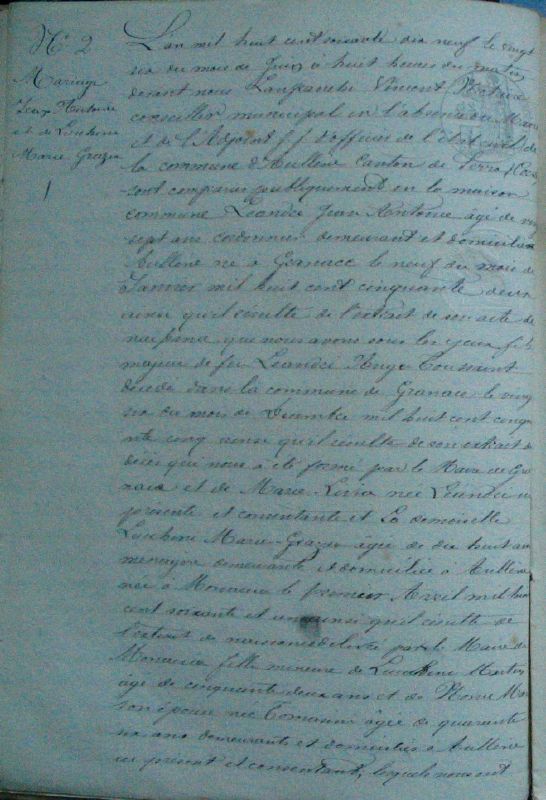 N° 2
Mariage
Jean Antoine
et de Lucchini
Marie Grazia
L'an mil huit cent soixante dix neuf le vingt
six du mois de Juin à huit heures du matin
devant nous Lanfranchi Vincent
conseiller municipal en l'absence du Maire
et de l'Adjoint f.f. d'officier de l'état civil de
la commune d'Aullène Canton de Serra (Corse)
sont comparus publiquement en la maison
commune Léandri Jean Antoine âgé de vingt
sept ans cordonnier demeurant et domicilié à
Aullène né à Granace le neuf du mois de
Janvier mil huit cent cinquante deux
ainsi qu'il résulte de l'extrait de son acte de
naissance que nous avons sous les yeux fils
majeur de feu Léandri Ange Toussaint
décédé dans la commune de Granace le vingt
six du mois de Décembre mil huit cent cinqua
nte cinq ainsi qu'il résulte de son extrait de
décès qui nous a été fourni par le Maire de Gra
nace et de Marie Livia née Léandri ici
présente et consentante et La demoiselle
Lucchini Marie Grazia âgée de dix huit ans
ménagère demeurante et domiciliée à Aullène
née à Monacia le premier Avril mil huit
cent soixante et un ainsi qu'il résulte de
l'extrait de naissance délivré par le Maire de
Monacia fille mineure de Lucchini Martin
âgé de cinquante deux ans et de Marie
son épouse née Tomasini âgée de quarante
six ans demeurants et domiciliés à Aullène
ici présent et consentant, lesquels nous ont